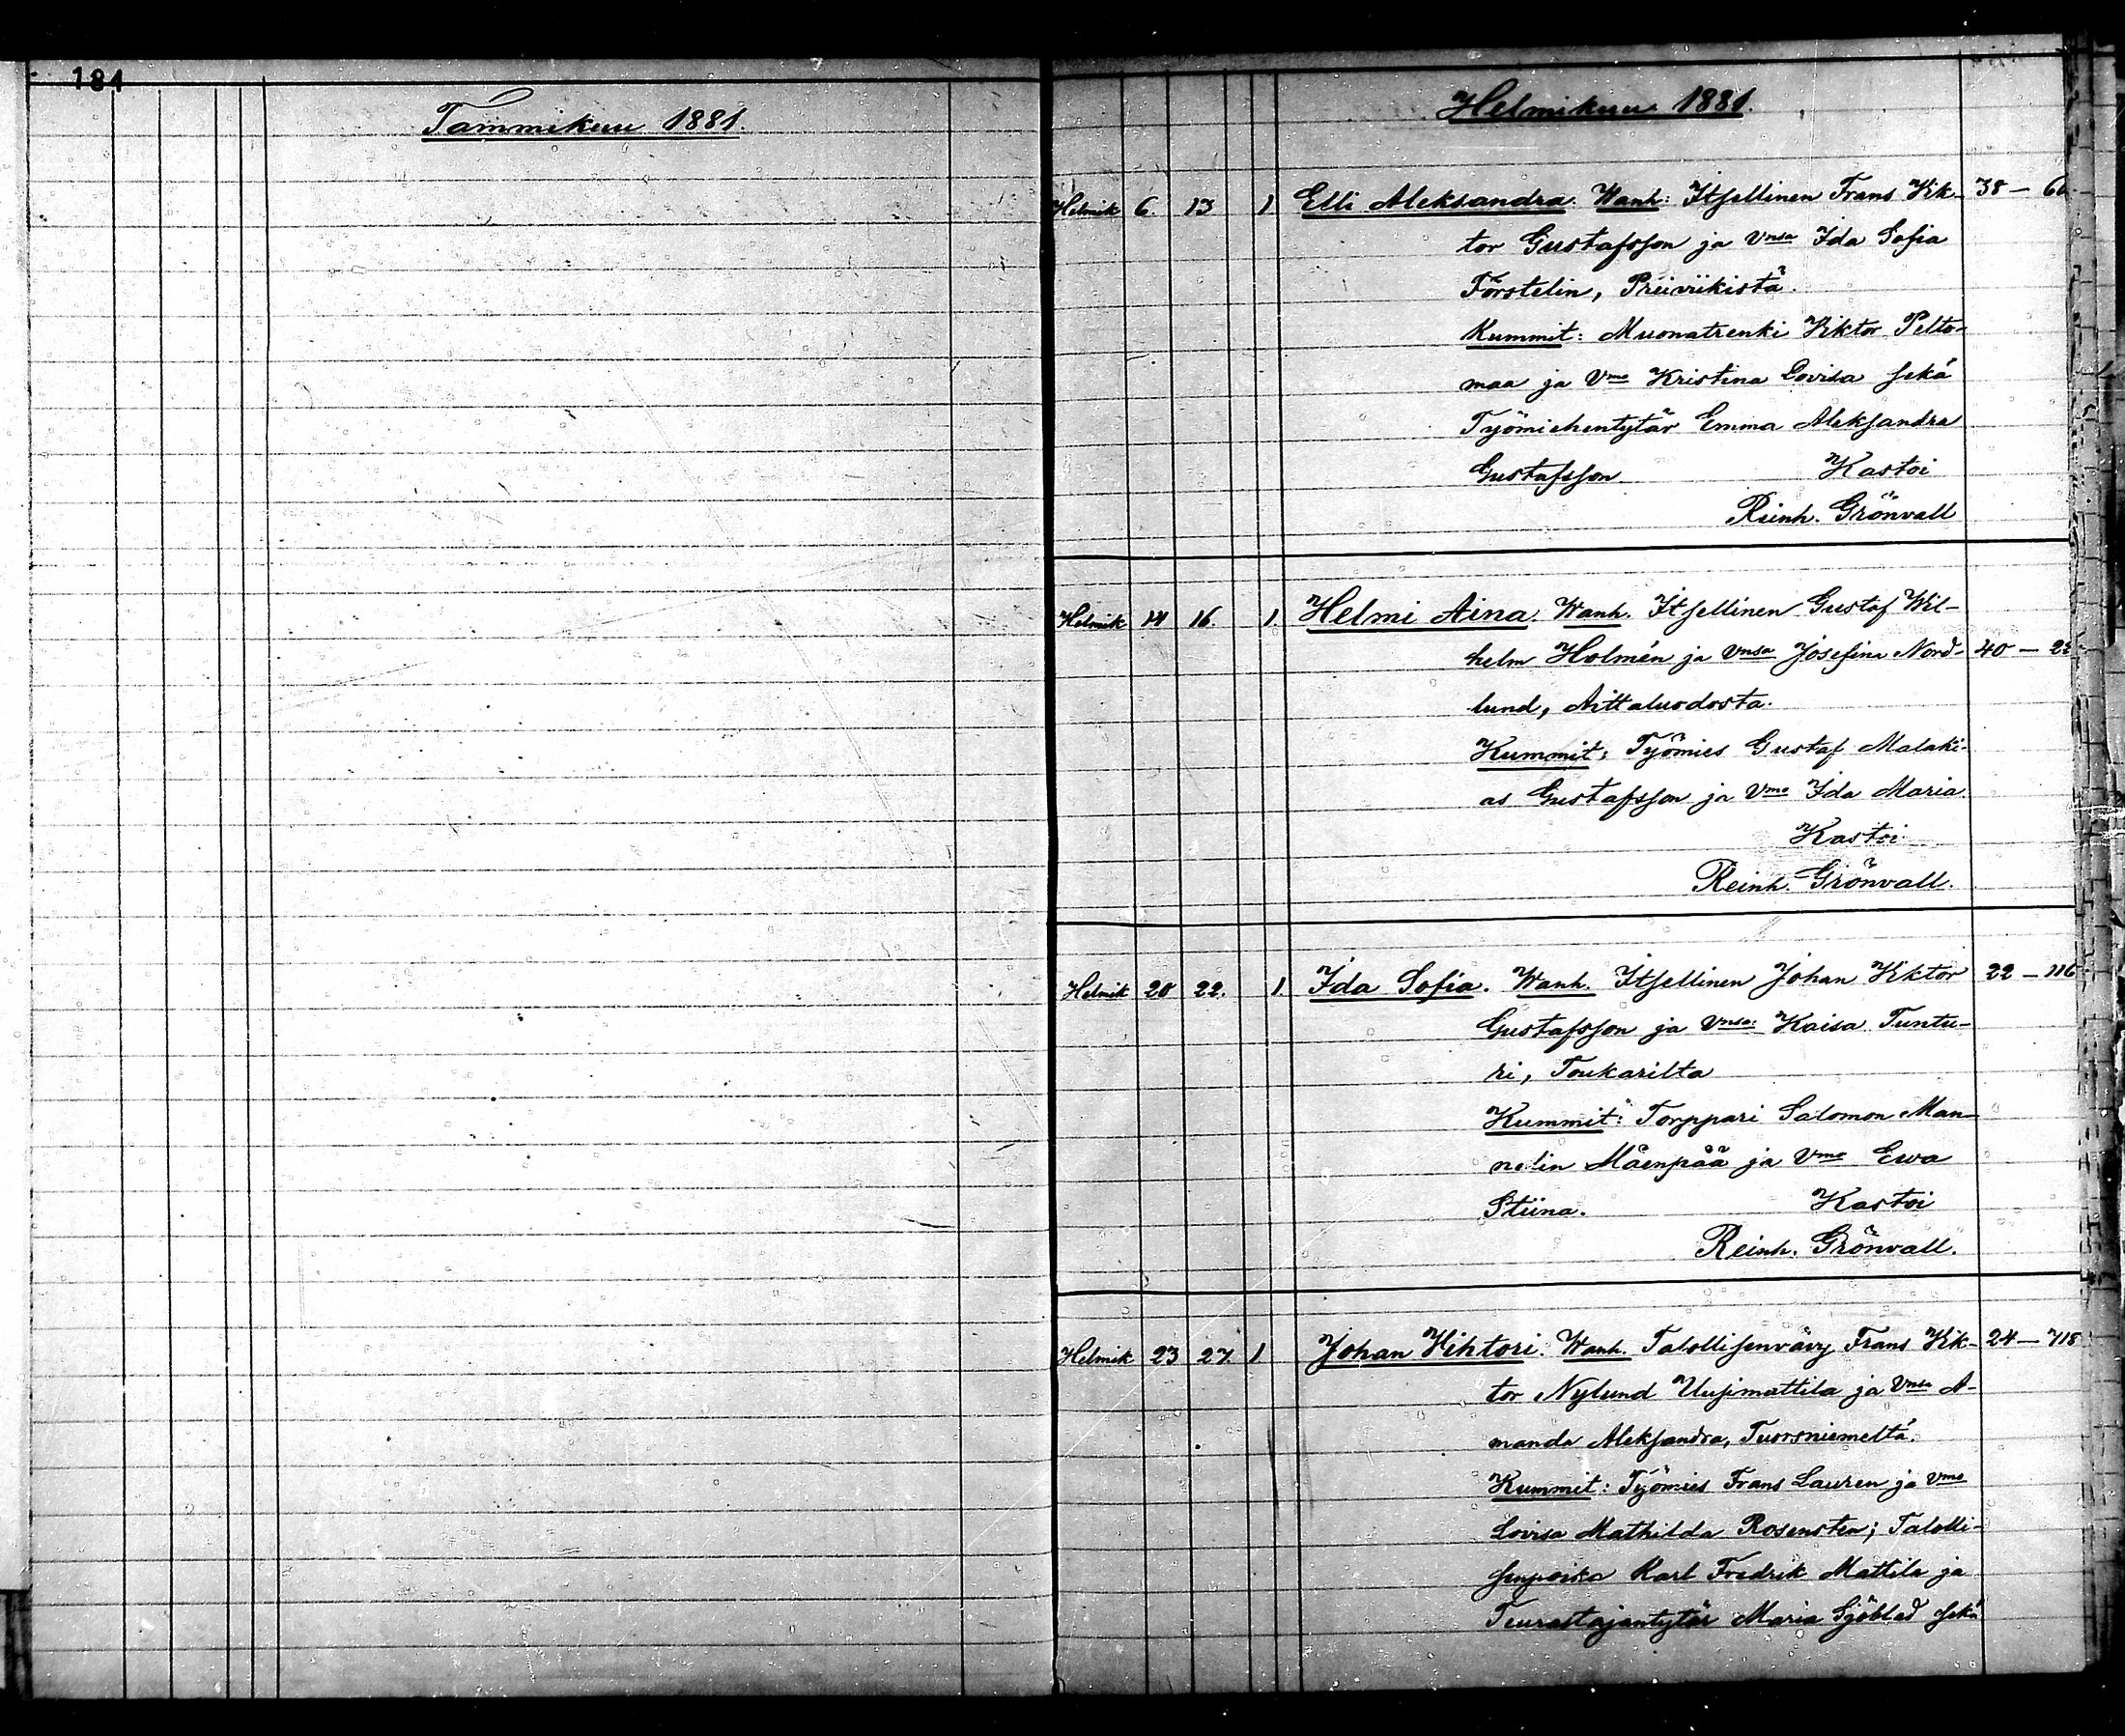 184
Tammikuu 1881.
Helmikuu 1881.
Helmik 6. 13 1 Elli Aleksandra. Wanh: Itsellinen Frans Vik- 38 —
tor Gustafsson ja Vnsa Ida Sofia
Förstelin, Preiviikistä.
Kummit: Muonatrenki Viktor Pelto-
maa ja Vmo Kristina Lovisa sekä
Työmiehentytär Emma Aleksandra
Gustafsson Kastoi
Reinh. Grönvall
Helmik 14 16. 1. Helmi Aina. Wanh. Itsellinen Gustaf Wil-
helm Holmén ja Vnsa Josefina Nord- 40 —
lund, Aittaluodosta.
Kummit: Työmies Gustaf Malaki-
as Gustafsson ja Vmo Ida Maria.
Kastoi
Reinh. Grönvall.
Helmik 20 22. 1. Ida Sofia. Wanh. Itsellinen Johan Viktor 22 — 116
Gustafsson ja Vnsa Kaisa Tuntu-
ri, Toukarilta
Kummit: Torppari Salomon Man-
nelin Mäenpää ja Vmo Ewa
Stiina. Kastoi
Reinh. Grönvall.
Helmik 23 27. 1 Johan Vihtori. Wanh. Talollisenvävy Frans Vik- 24 — 718
tor Nylund Uusimattila ja Vnsa A-
manda Aleksandra, Tuorsniemeltä.
Kummit: Työmies Frans Lauren ja Vmo
Lovisa Mathilda Rosensten; Talolli-
senpoika Karl Fredrik Mattila ja
Teurastajantytär Maria Sjöblad sekä